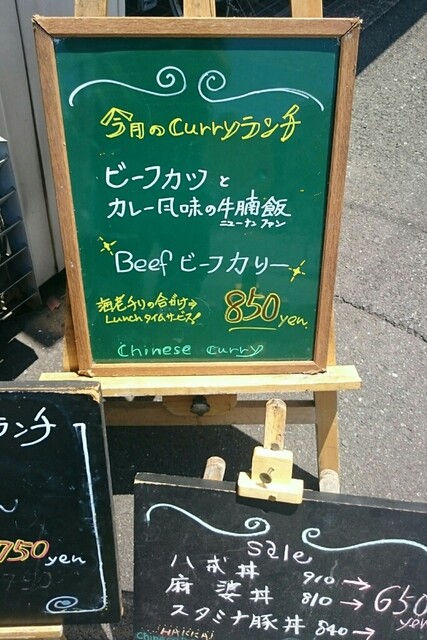 今月のcurryランチ
ビーフカツと
カレー風味の牛腩飯
ニューナンファン
Beef ビーフカリー
海老チリの合がけ
Lunchタイムサービス!
850yen.
Chinese curry
ランチ
750yen
sale
八戒丼 910→
麻婆丼 810→
スタミナ豚丼 840→
650
yen
HAKKAI